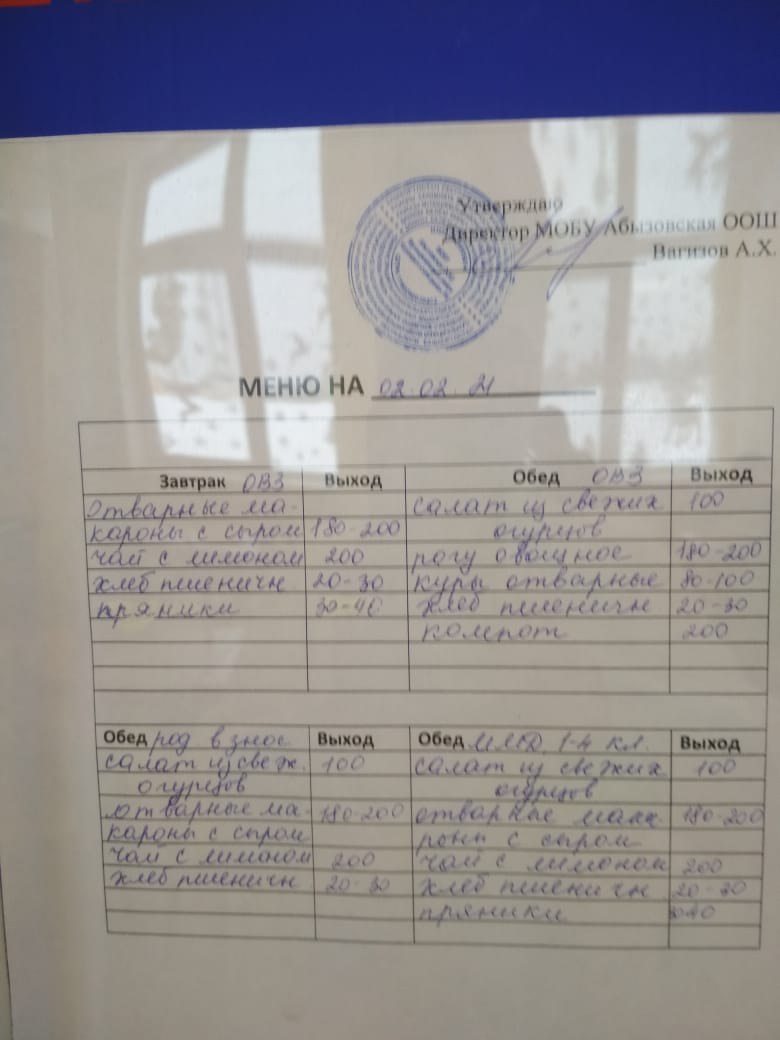 Утверждаю
Директор МОБУ Абызовская ООШ
Вагизов А.Х.
МЕНЮ НА 02.02.21
Завтрак ОВЗ Выход Обед ОВЗ Выход
Отварные ма- салат из свежих 100
кароны с сыром 180-200 огурцов
чай с лимоном 200 рагу овощное 180-200
хлеб пшеничн 20-30 куры отварные 80-100
пряники 30-40 хлеб пшеничн 20-30
компот 200
Обед род взнос Выход Обед 1-4 кл. Выход
салат из свеж. 100 салат из свежих 100
огурцов огурцов
Отварные ма- 180-200 отварные мака 180-200
кароны с сыром роны с сыром
чай с лимоном 200 чай с лимоном 200
хлеб пшеничн 20-30 хлеб пшеничн 20-30
пряники 30-40